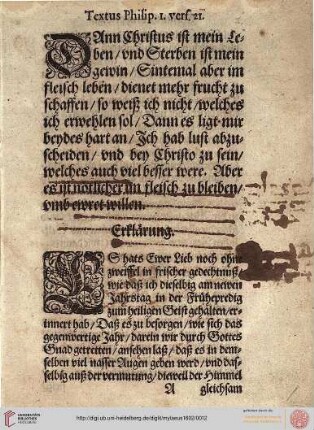 Textus Philip. 1. vers. 21.
DAnn Christus ist mein Le-
ben/ vnd Sterben ist mein
gewin/ Sintemal aber im
fleisch leben/ dienet mehr frucht zu
schaffen/ so weiß ich nicht/ welches
ich erwehlen sol/ Dann es ligt mir
beydes hart an/ Ich hab lust abzu-
scheiden/ vnd bey Christo zu sein/
welches auch viel besser were. Aber
es ist nötiicher im fleisch zu bleiben/
vmb ewret willen.
Erklärung.
ES hats Ewer Lieb noch ohn
zweiffel in frischer gedechtnuß/
wie daß ich dieselbig am newen
Jahrstag in der Frühepredig
zum heiligen Geist gehalten/ er-
innert hab/ Daß es zu besorgen/ wie sich das
gegenwertige Jahr/ darein wir durch Gottes
Gnad getretten/ ansehen laß/ daß es in dem-
selben viel nasser Augen geben werd/ vnd das-
selbig auß der vermutung/ dieweil der Himmel
A gleichsam
UNIVERSITÄTS-
BIBLIOTHEK
HEIDELBERG
http://digi.ub.uni-heidelberg.de/diglit/mylaeus1692/0012